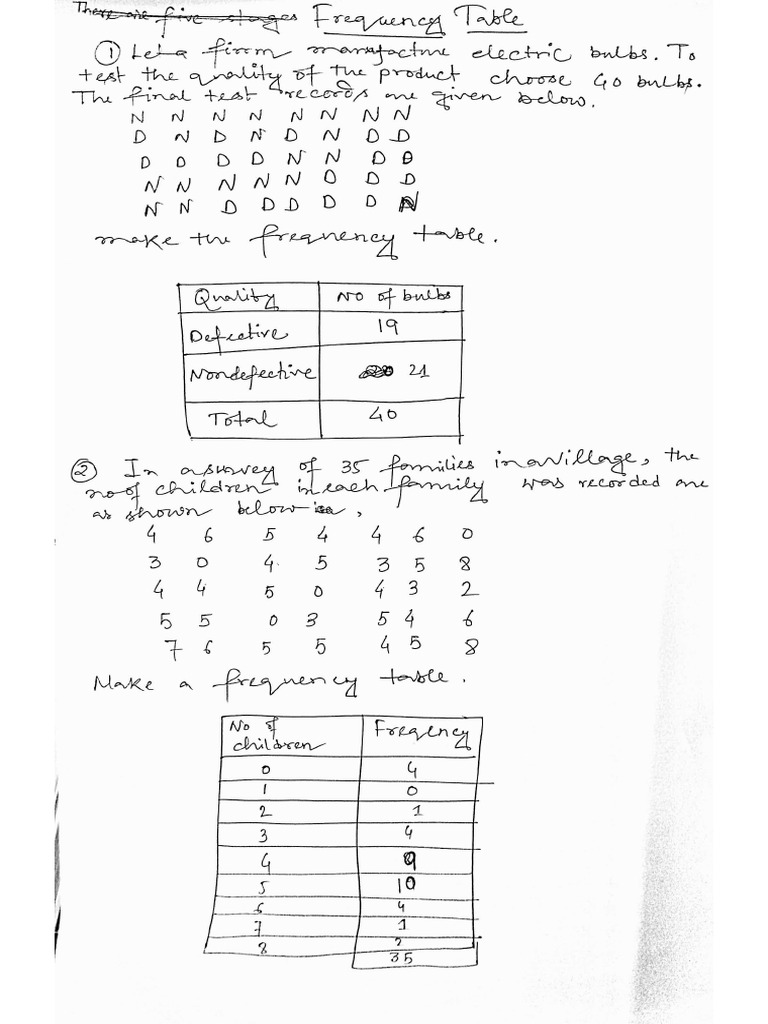 There are five stages Frequency Table
① Let a firm manufacture electric bulbs. To
test the quality of the product choose 40 bulbs.
The final test records are given below.
N N N N N N N N
D N D N D N D D
D D D D N N D D
N N N N N D D D
N N D D D D D N
make the frequency table.
Quality No of bulbs
Defective 19
Nondefective 21
Total 40
② In a survey of 35 families in a village, the
no of children in each family was recorded are
as shown below,
4 6 5 4 4 6 0
3 0 4 5 3 5 8
4 4 5 0 4 3 2
5 5 0 3 5 4 6
7 6 5 5 4 5 8
Make a frequency table.
No of children Freqency
0 4
1 0
2 1
3 4
4 9
5 10
6 4
7 1
8 2
35